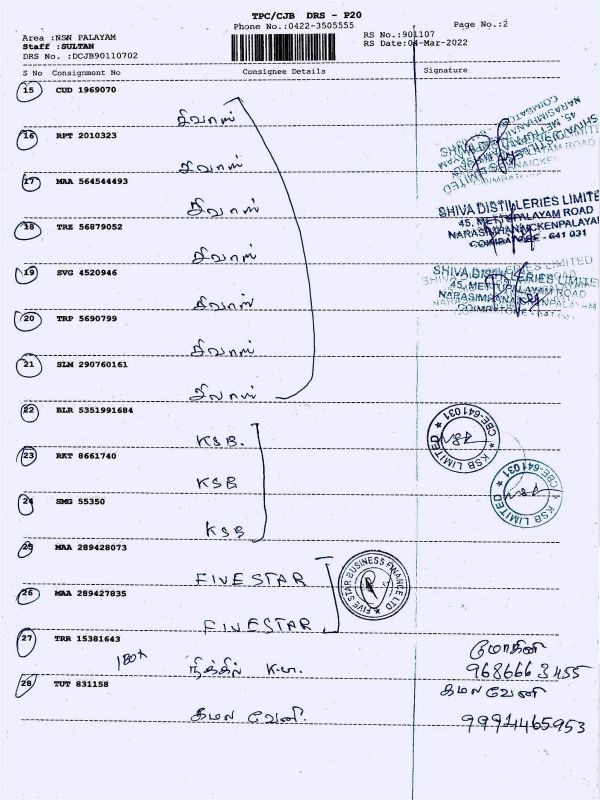 TPC/CJB DRS - P20
Phone No.:0422-3505555
Page No.:2
Area :NSN PALAYAM
Staff :SULTAN
DRS No. :DCJB90110702
RS No.:901107
RS Date:04-Mar-2022
S No Consignment No Consignee Details Signature
15 CUD 1969070
சிவாஸ்
16 RPT 2010323
சிவாஸ்
17 MAA 564544493
சிவாஸ்
18 TRZ 56879052
சிவாஸ்
19 SVG 4520946
சிவாஸ்
20 TRP 5690799
சிவாஸ்
21 SLM 290760161
சிவாஸ்
SHIVA DISTILLERIES LIMITED
45, METTUPALAYAM ROAD
NARASIMHANAICKENPALAYAM
COIMBATORE - 641 031
SHIVA DISTILLERIES LIMITE
45, METTUPALAYAM ROAD
NARASIMHANAICKENPALAYA
COIMBATORE - 641 031
SHIVA DISTILLERIES LIMITE
45, METTUPALAYAM ROAD
NARASIMHANAICKENPALAYA
22 BLR 5351991684
KSB.
23 RKT 8661740
KSB
24 SMG 55350
KSB
KSB LIMITED CBE-641031
KSB LIMITED CBE-641031
25 MAA 289428073
FIVESTAR
26 MAA 289427835
FIVESTAR
FIVE STAR BUSINESS FINANCE LTD
27 TRR 15381643
180x
நித்தில் K.
9686663455
28 TUT 831158
கமலவேனி
கமலவேனி
9991465953